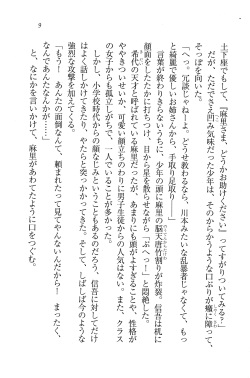 9
土下座でもして「麻里さま、どうかお助けください」ってすがりついてみる？」
だが、ただでさえ凹み気味だった少年は、そのからかうような口ぶりが癪に障って、
そっぽを向いた。
「へっ。冗談じゃねーよ。どうせ教わるなら、川本みたいな乱暴者じゃなくて、もっ
と綺麗で優しいお姉さんから、手取り足取りー」
言葉が終わらないうちに、少年の頭に麻里の脳天唐竹割りが炸裂。信吾は机に
顔面をしたたかに打つけ、目から星を散らせながら「ぷへっ！」と悶絶した。
希代の天才と呼ばれている麻里だったが、あまりにも頭がよすぎることや、性格が
ややきついせいか、可愛い顔立ちのわりに男子生徒からの人気はない。また、クラス
の女子からも孤立しがちで、一人でいることが多かった。
しかし、小学校時代からの顔なじみということもあるのだろう、信吾に対してだけ
は、なぜか彼女のほうからちょっと突っかかってきた。そして、しばしば今のような
強烈な攻撃を加えてくる。
「もうー　あんたの面倒なんて、頼まれたって見てやんないんだから！　まったく、
なんであんたなんかが……」
と、なにかを言いかけて、麻里があわてたように口をつぐむ。